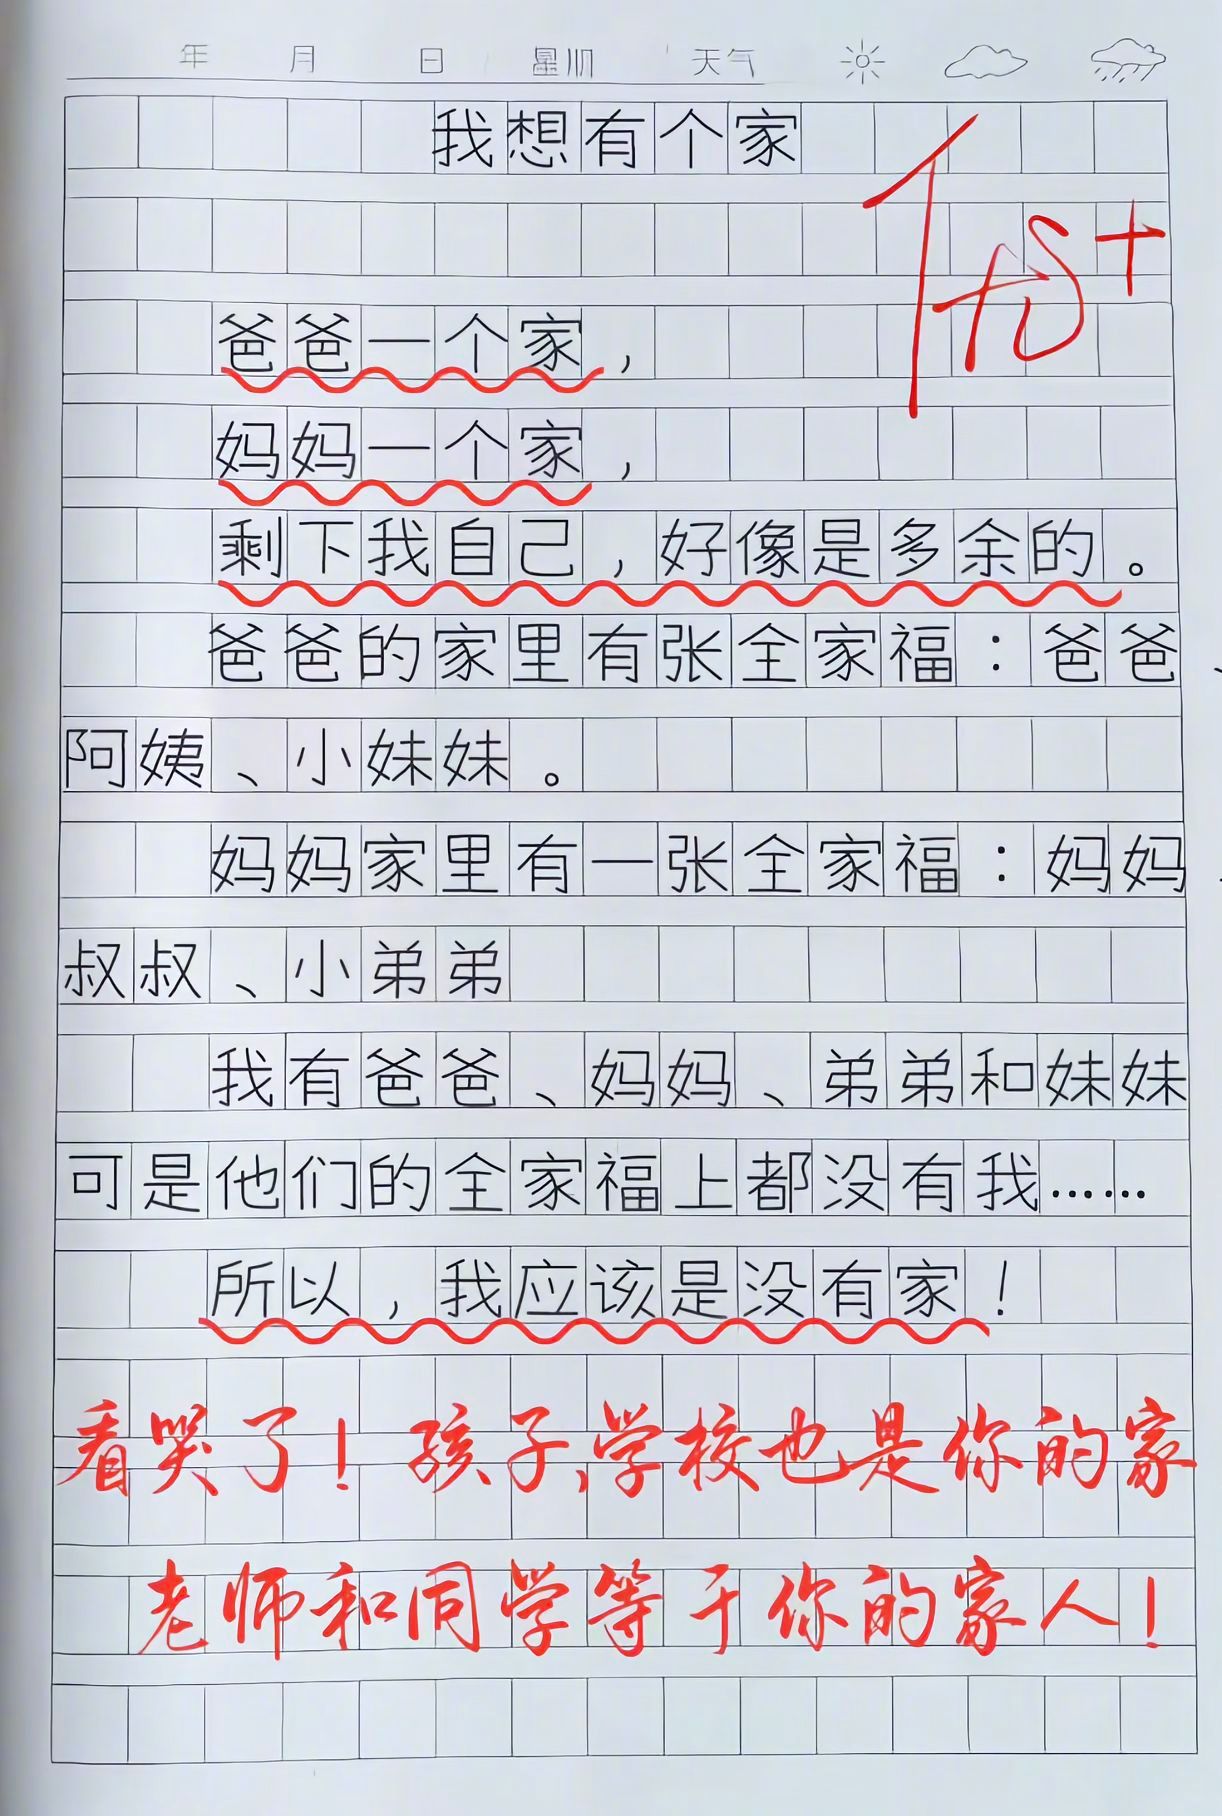 年 月 日 星期 天气
我想有个家
优+
爸爸一个家，
妈妈一个家，
剩下我自己，好像是多余的。
爸爸的家里有张全家福：爸爸、
阿姨、小妹妹。
妈妈家里有一张全家福：妈妈、
叔叔、小弟弟
我有爸爸、妈妈、弟弟和妹妹
可是他们的全家福上都没有我……
所以，我应该是没有家！
看哭了！孩子，学校也是你的家
老师和同学等于你的家人！